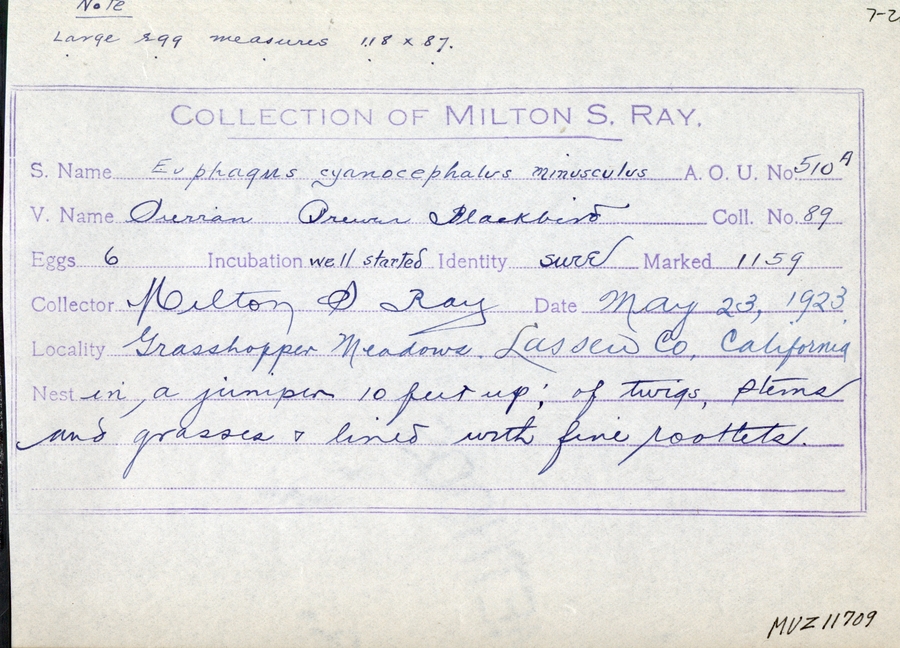 Note
7-2
Large egg measures 1.18 x 87.
COLLECTION OF MILTON S. RAY.
S. Name Euphagus cyanocephalus minusculus A. O. U. No. 510A
V. Name Brewer Blackbird Coll. No. 89
Eggs 6 Incubation well started Identity sure Marked 1159
Collector Milton S Ray Date May 23, 1923
Locality Grasshopper Meadows. Lassen Co, California
Nest in a juniper 10 feet up; of twigs, stems
and grasses & lined with fine rootlets.
MVZ 11709